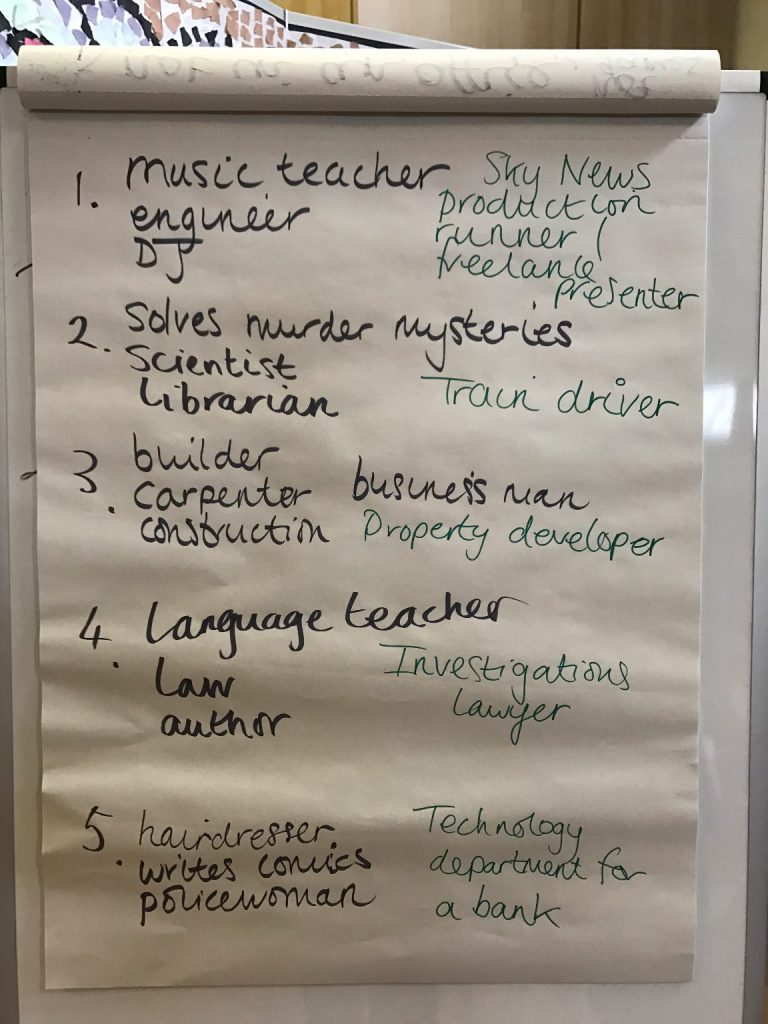 not in an office
1. music teacher
engineer
DJ
Sky News
production
runner /
freelance
presenter
2. Solves murder mysteries
scientist
Librarian
Train driver
3. builder
carpenter
construction
business man
Property developer
4. Language teacher
Law
author
Investigations
Lawyer
5. hairdresser
writes comics
policewoman
Technology
department for
a bank